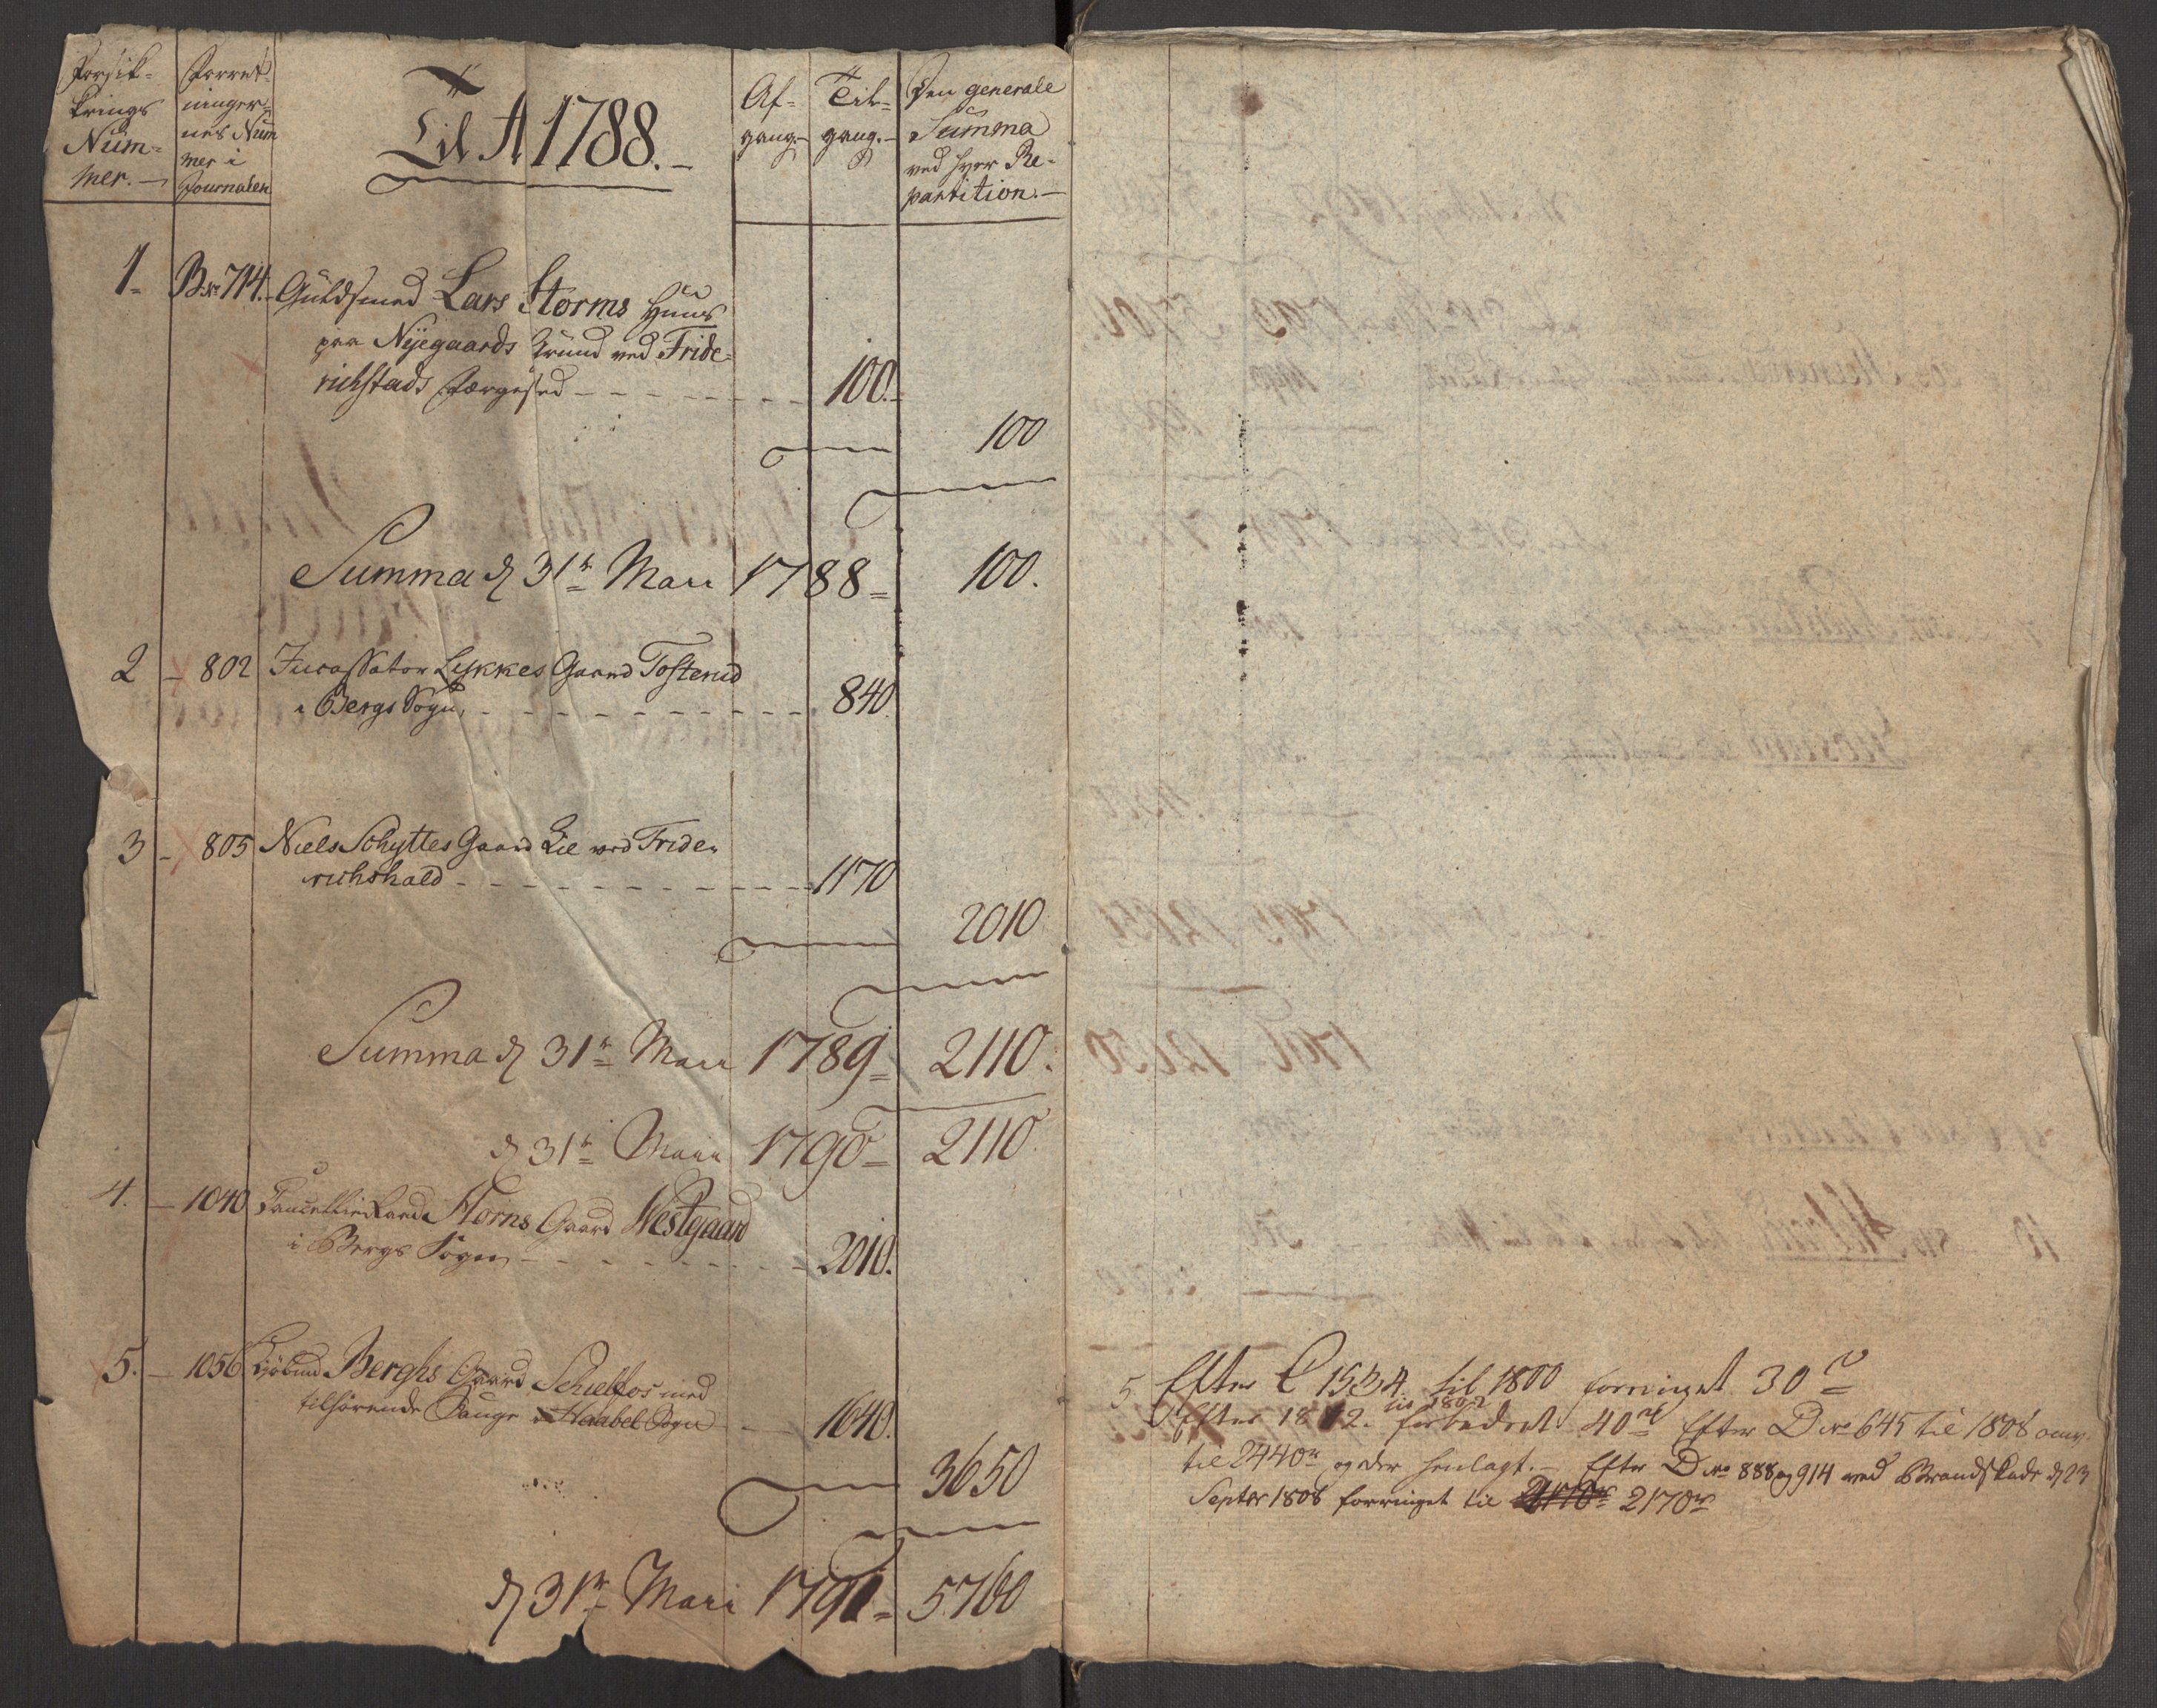 Forsik-
krings
Num-
mer. —
Forret-
ninger-
nes Num
mer i
Journalen
Til A 1788. —
Af-
gang. —
Til-
gang. —
Den generale
Summa
ved hver Re-
partition. —
1- B No 714. Guldsmed Lars Storms Huus
paa Nÿegaards Grund ved Fride-
richstads Færgested - - - - - - - - 100.-
100
Summa d 31te Maii 1788 = 100.
2 - 802 Incassator Lykkes Gaard Tosterud
i Bergs Sogn, - - - - - - - - - 840
3 - 805 Niels Schyttes Gaard Lie ved Fride-
richshald - - - - - - - - - - - 1170
2010
Summa d 31te Maii 1789 = 2110.
d 31te Maii 1790 = 2110.
4. - 1040 Cancellieraad Storms Gaard Westgaard
i Bergs Sogn - - - - - - - - 2010.
5. - 1056 Berghs Gaard Schieltos med
tilhørende Sauge i Haabel Sogn - — 1640.
3650
d 31te Maii 1791 = 5760
5 Efter C 1534. til 1800 forringet 30 rd
til 1802
Efter 1812. forbedret 40 rd Efter D No 645 til 1808 omv.
til 2440 rd og der henlagt. — Efter D No 888 og 914 ved Brandskade d 23
Septbr 1808 forringet til 2170 rd